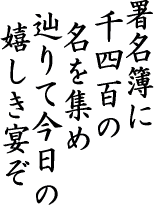 署名簿に
千四百の
名を集め
辿りて今日の
嬉しき宴ぞ